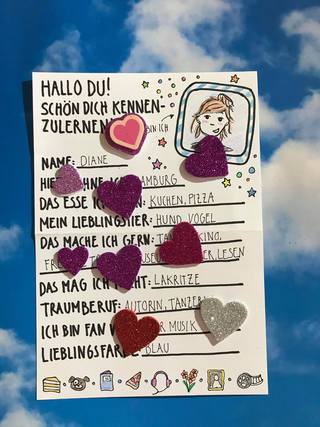 HALLO DU!
SCHÖN DICH KENNEN-
ZULERNEN
BIN ICH
NAME: DIANE
ICH AMBURG
DAS ESSE KUCHEN, PIZZA
MEIN LIEBLINGSTIER: HUND, VOGEL
DAS MACHE ICH GERN: KINO,
LESEN
DAS MAG LAKRITZE
TRAUMBERUF: AUTORIN, TÄNZER
ICH BIN FAN MUSIK
LIEBLINGSFAR BLAU